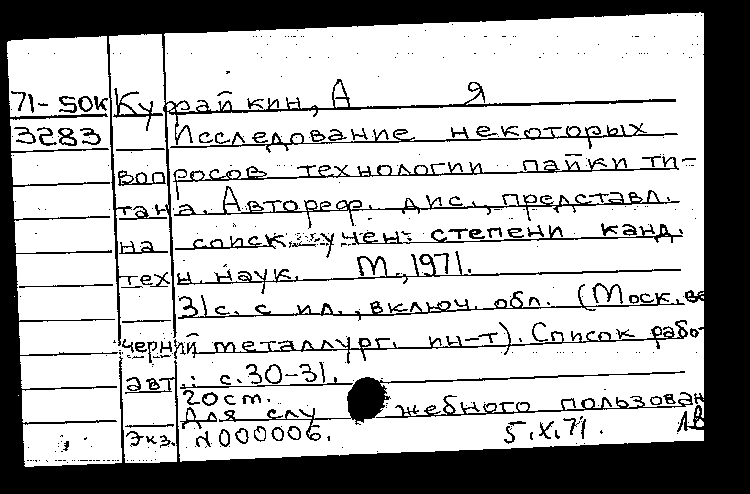 71-50К Куфайкин, А Я
3283 Исследование некоторых
вопросов технологии пайки ти-
тана. Автореф. дис., представл.
на соиск. учен. степени канд.
техн. наук. М., 1971.
31с. с ил., включ. обл. (Моск. ве
черний металлург. ин-т). Список рабо-
авт.: с. 30-31.
20см.
Для служебного пользован
Экз. N000006. 5.X.71.